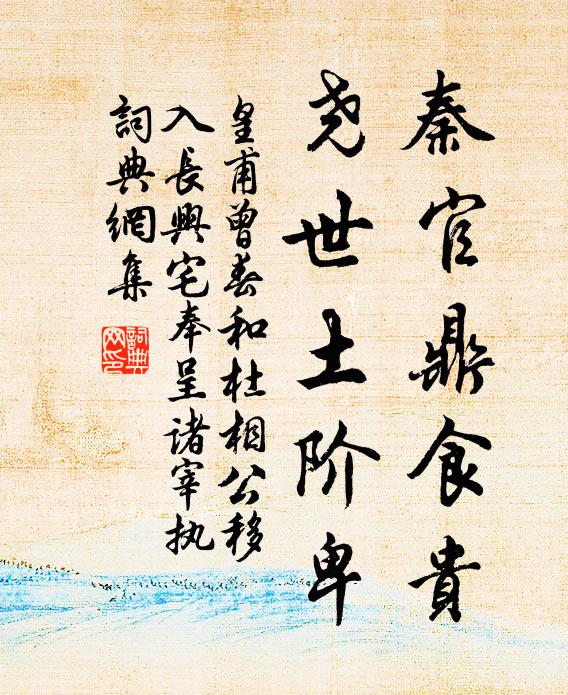 秦官鼎食貴
尧世土阶卑
皇甫曾奉和杜相公移
入長興宅奉呈諸宰执
詞典網集
詞典
网印